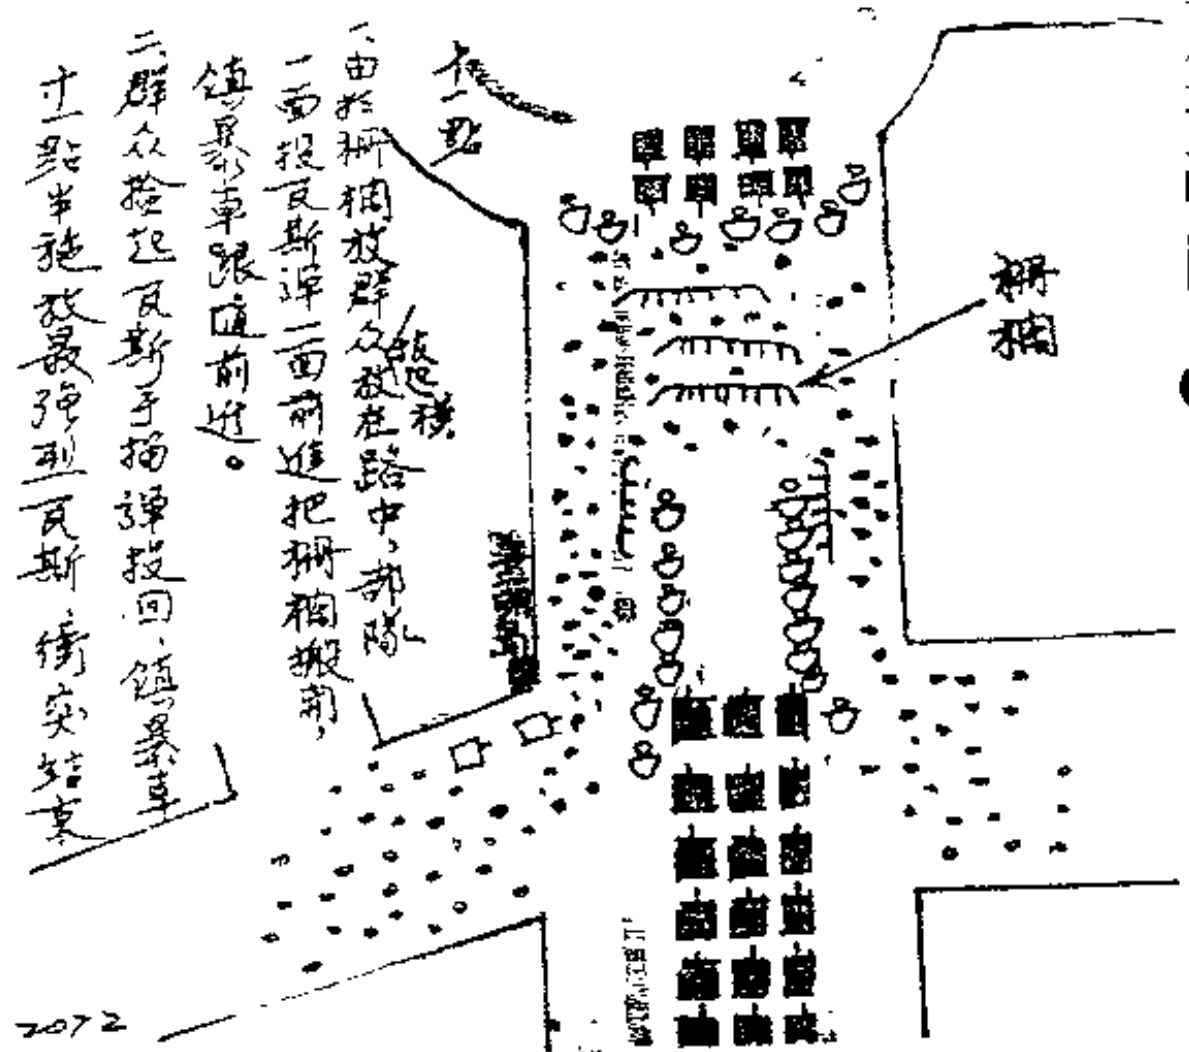 十一點
一、由於柵欄被群众放在路中、部隊
一面投瓦斯彈一面前進把柵欄搬前,
鎮暴車跟進前進。
二、群众撿起瓦斯手擲彈投回、鎮暴車
十一點半施放最强型瓦斯衝突結束
橫
柵
欄
2072